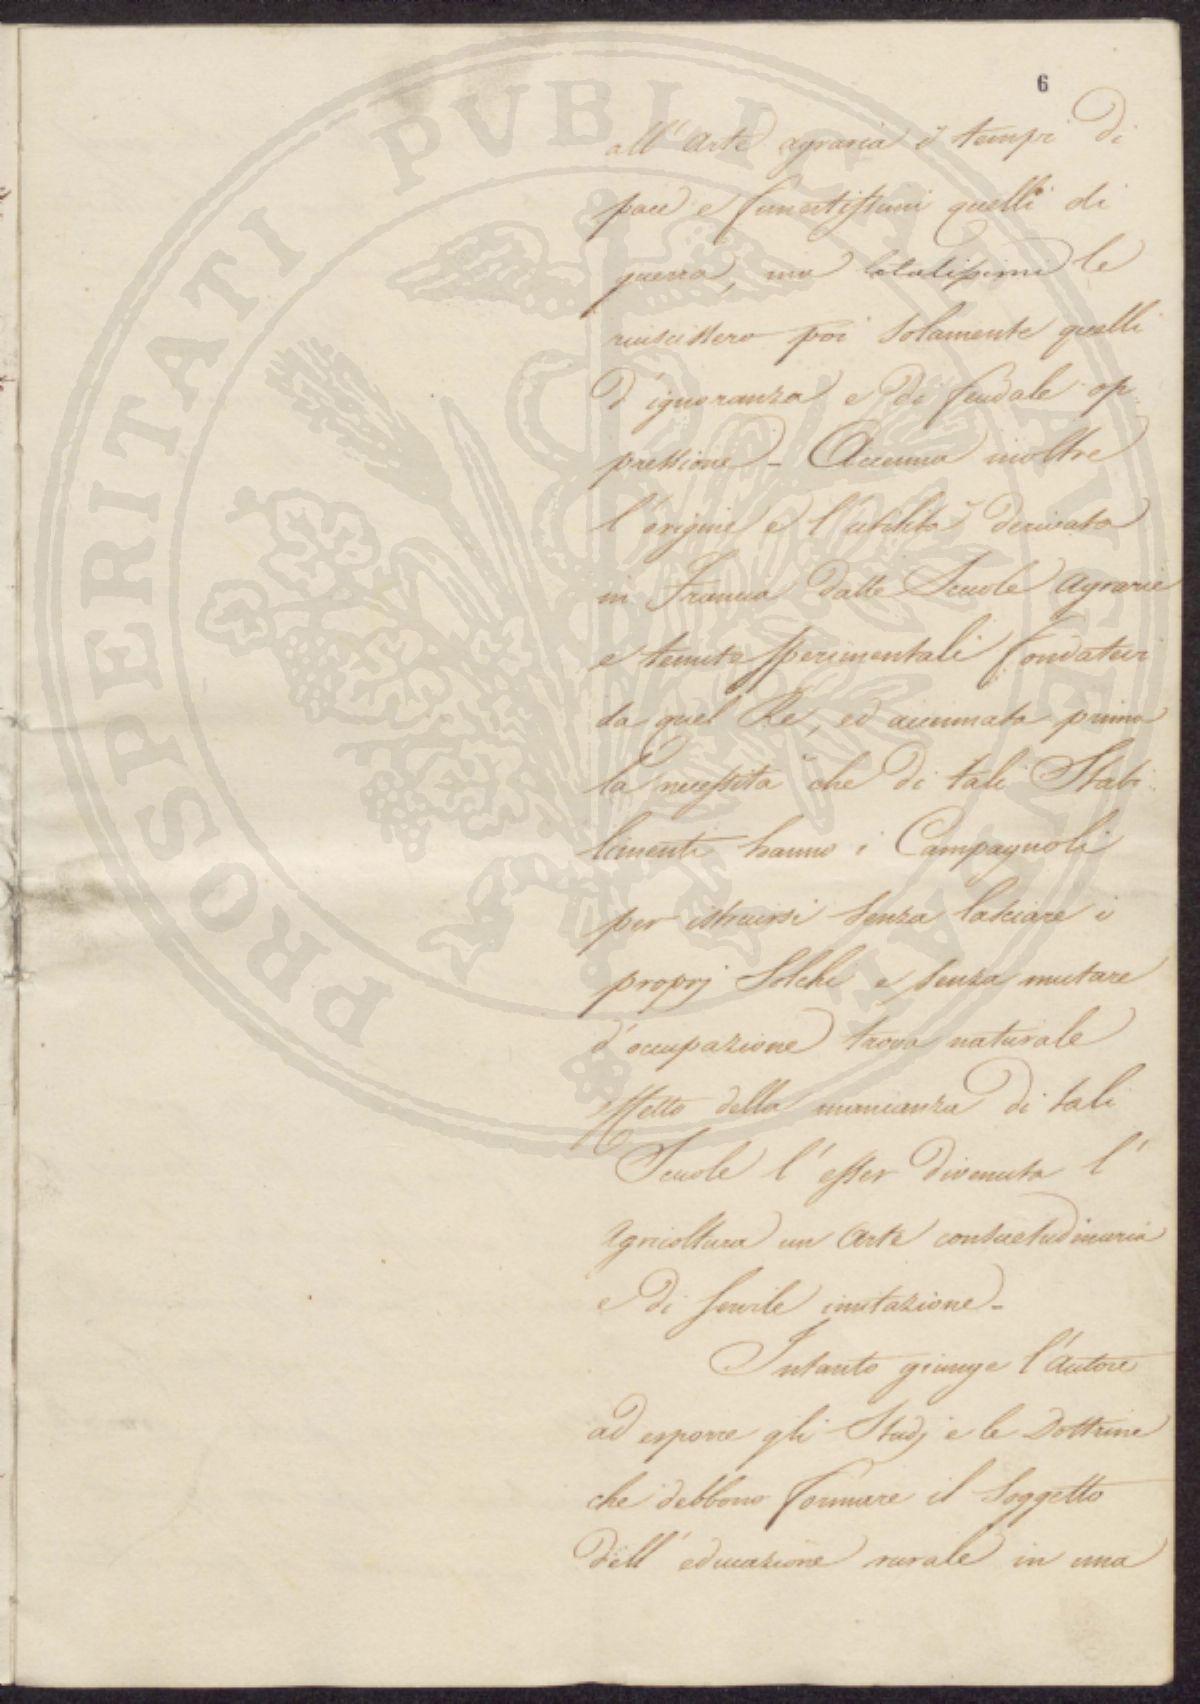 6
all' Arte agraria i tempi di
pace e funestissimi quelli di
guerra, ma letalissimi le
riuscissero poi solamente quelli
d'ignoranza e di feudale op-
pressione - Accenna inoltre
l'origine e l'utilità derivata
in Francia dalle Scuole Agrarie
e tenute sperimentali fondatevi
da quel Re, ed accennata prima
la necessità che di tali Stabi-
limenti hanno i Campagnoli
per istruirsi senza lasciare i
proprj Solchi e senza mutare
d'occupazione trova naturale
effetto della mancanza di tali
Scuole l'esser divenuta l'
Agricoltura un Arte consuetudinaria
e di servile imitazione -
Intanto giunge l'Autore
ad esporre gli Studj e le Dottrine
che debbono formare il Soggetto
dell'educazione rurale in una
PROSPERITATI PVBLICAE AVGENDAE